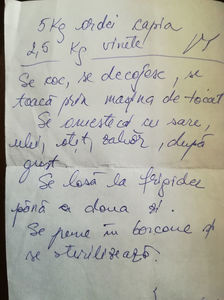 5 Kg ardei capia
2,5 Kg vinete
Se coc, se decojesc, se
toacă prin mașina de tocat
Se amestecă cu sare,
ulei, oțet, zahăr, după
gust
Se lasă la frigider
până a doua zi.
Se pune în borcane și
se sterilizează.